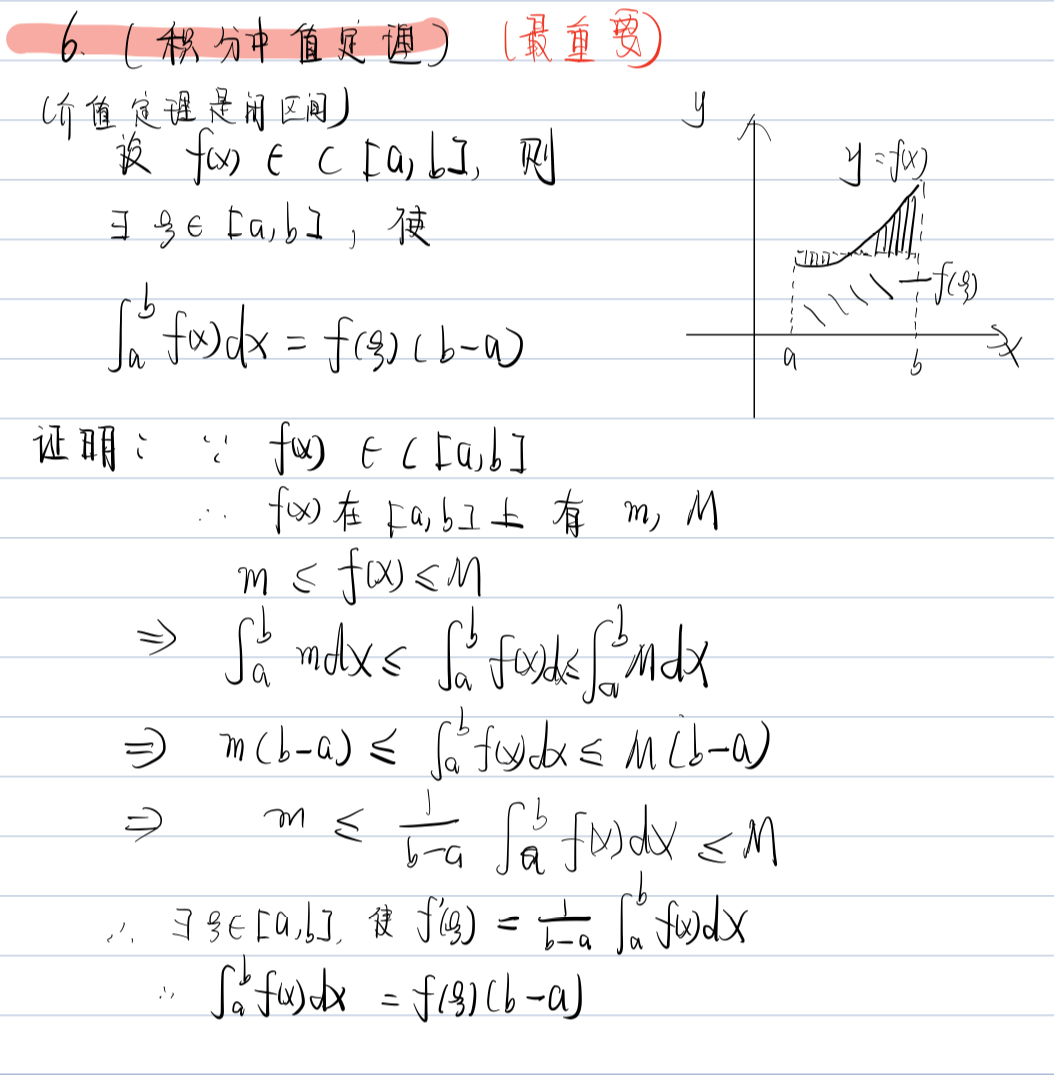 6. (积分中值定理) (最重要)
(介值定理是闭区间)
设 f(x) ∈ C [a, b], 则
∃ ξ ∈ [a, b], 使
∫_a^b f(x)dx = f(ξ)(b-a)
y
y=f(x)
f(ξ)
a b x
证明: ∵ f(x) ∈ C[a,b]
∴ f(x) 在 [a,b] 上 有 m, M
m ≤ f(x) ≤ M
⇒ ∫_a^b mdx ≤ ∫_a^b f(x)dx ≤ ∫_a^b Mdx
⇒ m(b-a) ≤ ∫_a^b f(x)dx ≤ M(b-a)
⇒ m ≤ 1/(b-a) ∫_a^b f(x)dx ≤ M
∴ ∃ ξ∈[a,b], 使 f'(ξ) = 1/(b-a) ∫_a^b f(x)dx
∴ ∫_a^b f(x)dx = f(ξ)(b-a)